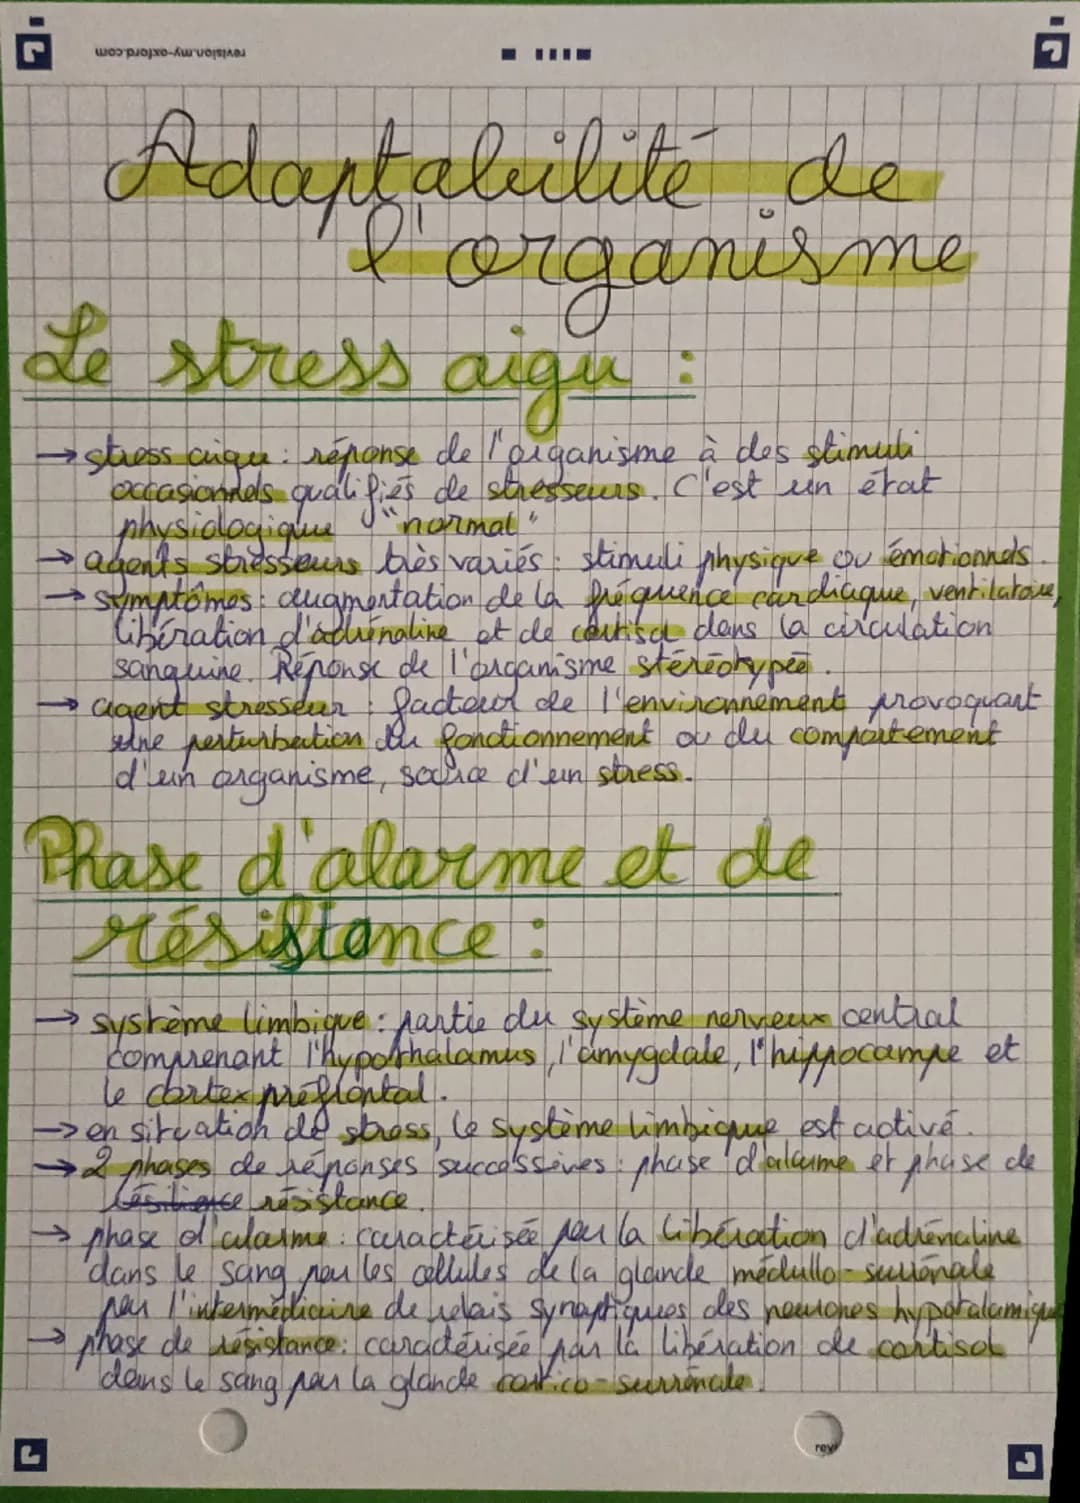 revision.my-oxford.com
Adaptabilité de
l'organisme
Le stress aigu :
→ stress aigu : réponse de l'organisme à des stimuli
occasionnels qualifiés de stresseurs. C'est un état
physiologique "normal"
→ agents stresseurs très variés : stimuli physique ou émotionnels.
→ symptômes : augmentation de la fréquence cardiaque, ventilatoire,
libération d'adrénaline et de cortisol dans la circulation
sanguine. Réponse de l'organisme stéréotypée.
→ agent stresseur : facteur de l'environnement provoquant
une perturbation du fonctionnement ou du comportement
d'un organisme, source d'un stress.
Phase d'alarme et de
résistance :
→ système limbique : partie du système nerveux central
comprenant l'hypothalamus, l'amygdale, l'hippocampe et
le cortex préfrontal.
→ en situation de stress, le système limbique est activé.
→ 2 phases de réponses successives : phase d'alarme et phase de
résilience résistance.
→ phase d'alarme : caractérisée par la libération d'adrénaline
dans le sang par les cellules de la glande médullo-surrénale
par l'intermédiaire de relais synaptiques des neurones hypotalamique
→ phase de résistance : caractérisée par la libération de cortisol
dans le sang par la glande cortico-surrénale.
rev